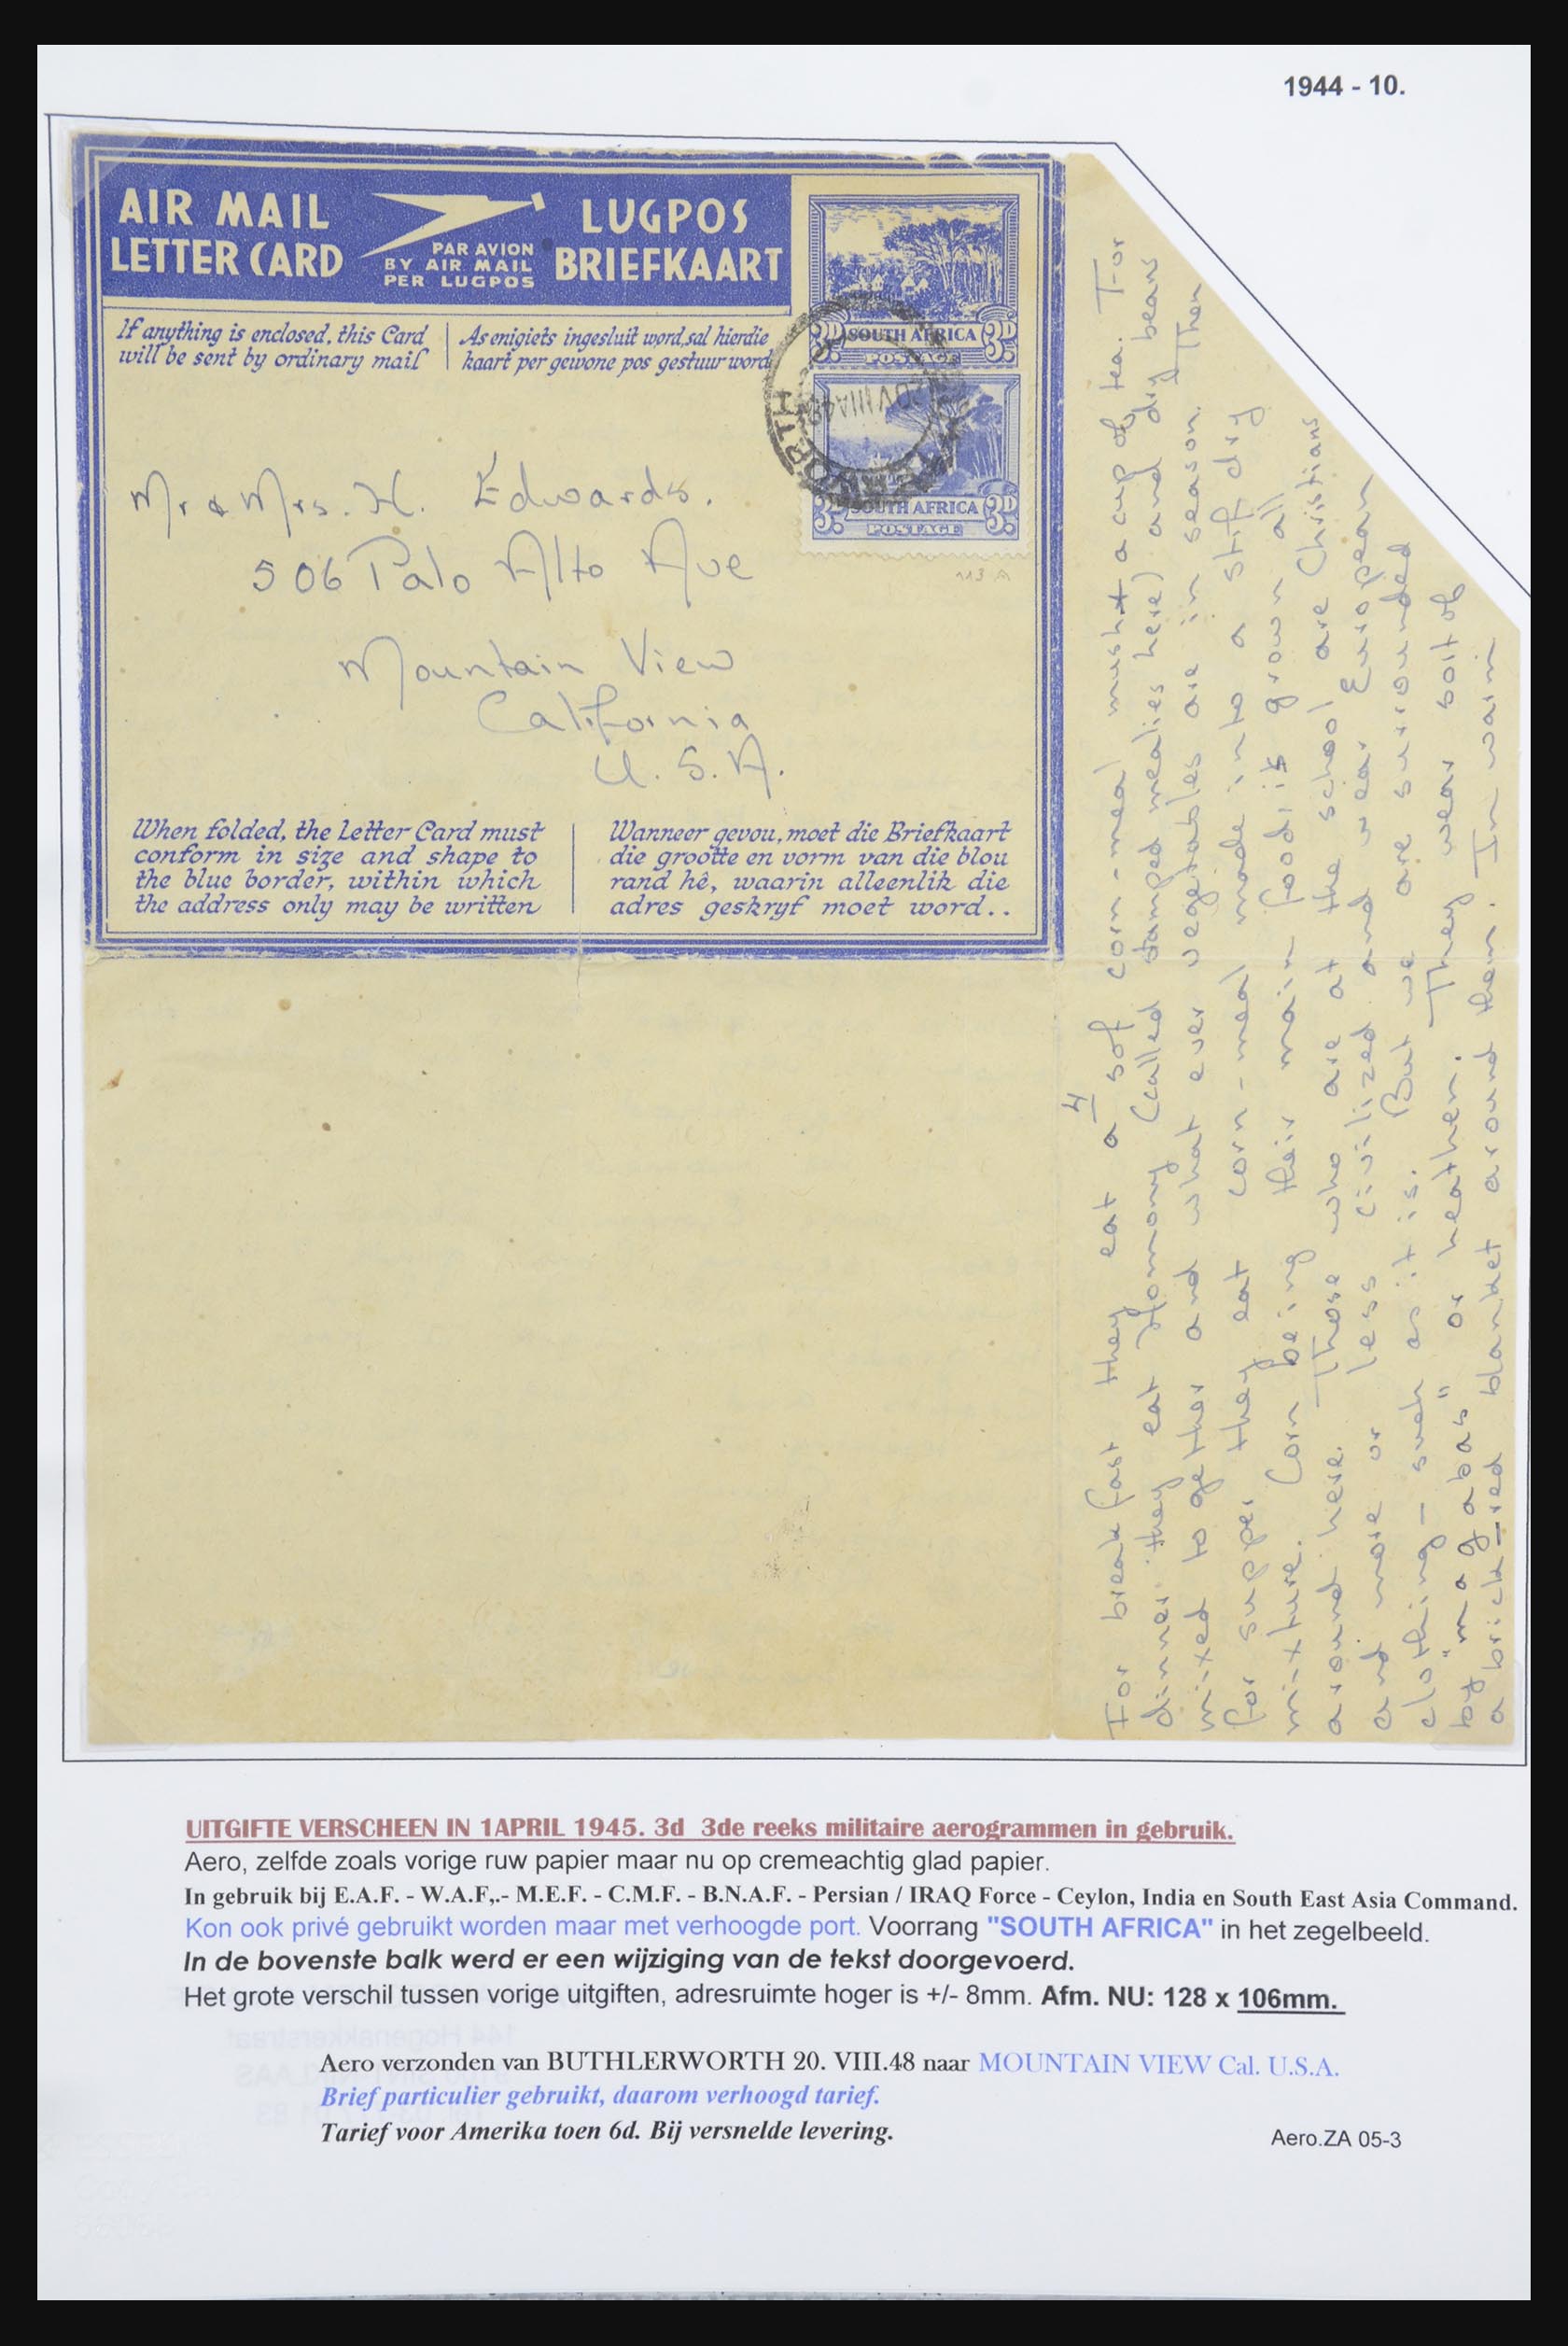 1944 - 10.
AIR MAIL
LETTER CARD
PAR AVION
BY AIR MAIL
PER LUGPOS
LUGPOS
BRIEFKAART
If anything is enclosed, this Card
will be sent by ordinary mail
As enigiets ingesluit word, sal hierdie
kaart per gewone pos gestuur word
3D SOUTH AFRICA 3D
POSTAGE
3D SOUTH AFRICA 3D
POSTAGE
20 VIII 48
Mr & Mrs. H. Edwards.
506 Palo Alto Ave
Mountain View
California
U. S. A.
113 A
When folded, the Letter Card must
conform in size and shape to
the blue border, within which
the address only may be written
Wanneer gevou, moet die Briefkaart
die grootte en vorm van die blou
rand hê, waarin alleenlik die
adres geskryf moet word..
4
For breakfast they eat a sof corn-meal mush + a cup of tea. For
dinner they eat Homony (called stamped mealies here) and dry beans
mixed together and what ever vegetables are in season. Then
for supper they eat corn-meal made into a stif dry
mixture. Corn being their main food is grown all
around here. Those who are at the school are Christians
and more or less civilized and wear European
clothing - such as it is. But we are surrounded
by "magabas" or heathen. They wear sort of
a brick-red blanket around them. In warm
UITGIFTE VERSCHEEN IN 1APRIL 1945. 3d 3de reeks militaire aerogrammen in gebruik.
Aero, zelfde zoals vorige ruw papier maar nu op cremeachtig glad papier.
In gebruik bij E.A.F. - W.A.F,.- M.E.F. - C.M.F. - B.N.A.F. - Persian / IRAQ Force - Ceylon, India en South East Asia Command.
Kon ook privé gebruikt worden maar met verhoogde port. Voorrang "SOUTH AFRICA" in het zegelbeeld.
In de bovenste balk werd er een wijziging van de tekst doorgevoerd.
Het grote verschil tussen vorige uitgiften, adresruimte hoger is +/- 8mm. Afm. NU: 128 x 106mm.
Aero verzonden van BUTHLERWORTH 20. VIII.48 naar MOUNTAIN VIEW Cal. U.S.A.
Brief particulier gebruikt, daarom verhoogd tarief.
Tarief voor Amerika toen 6d. Bij versnelde levering.
Aero.ZA 05-3